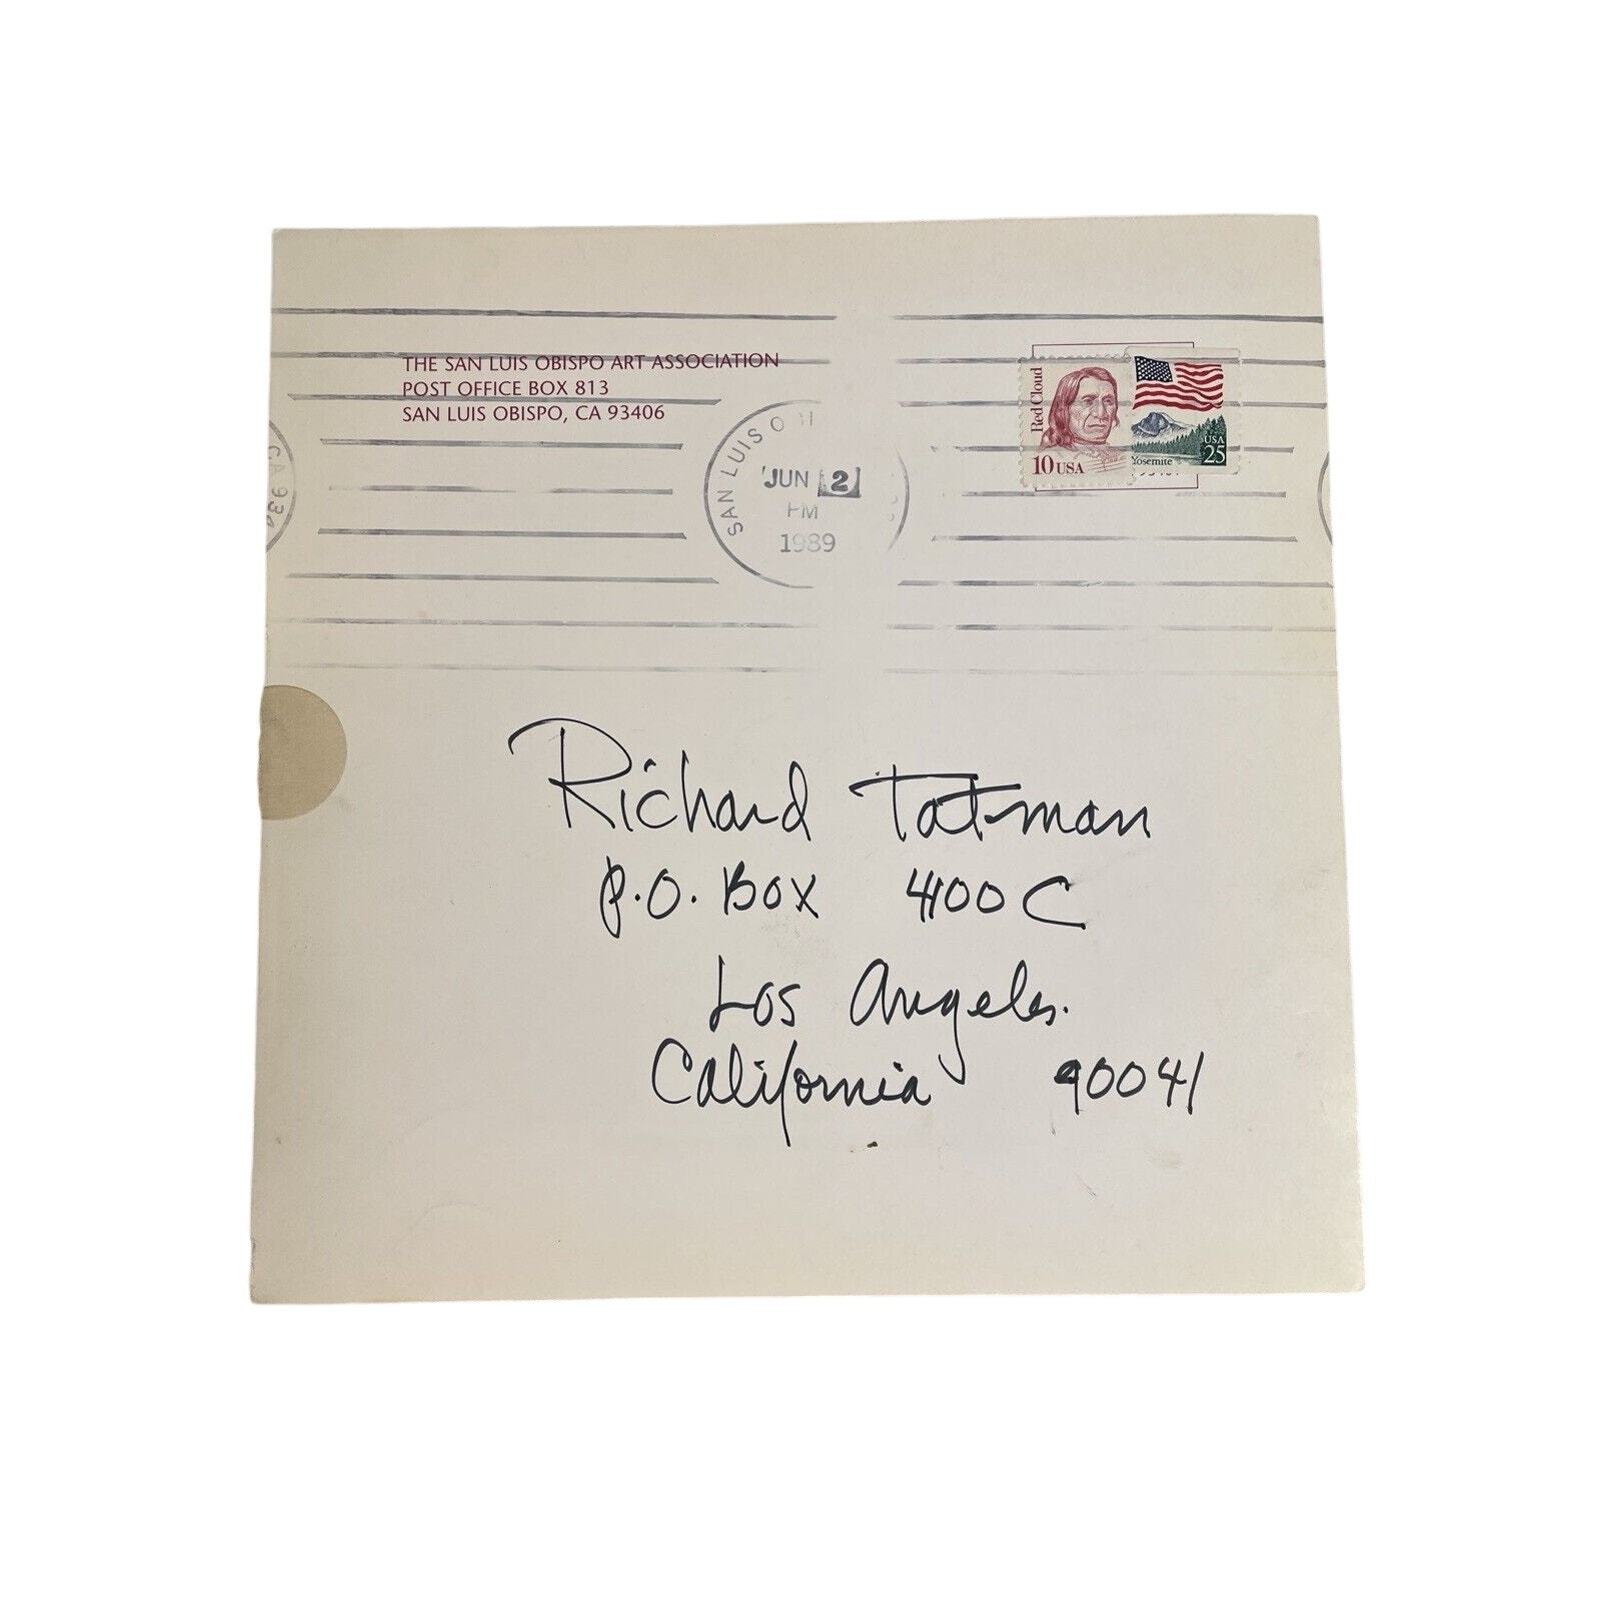 THE SAN LUIS OBISPO ART ASSOCIATION
POST OFFICE BOX 813
SAN LUIS OBISPO, CA 93406
SAN LUIS O
JUN 2
PM
1989
CA 934
Red Cloud
10 USA
Yosemite
USA
25
Richard Tatman
P.O. Box 4100 C
Los Angeles.
California 90041